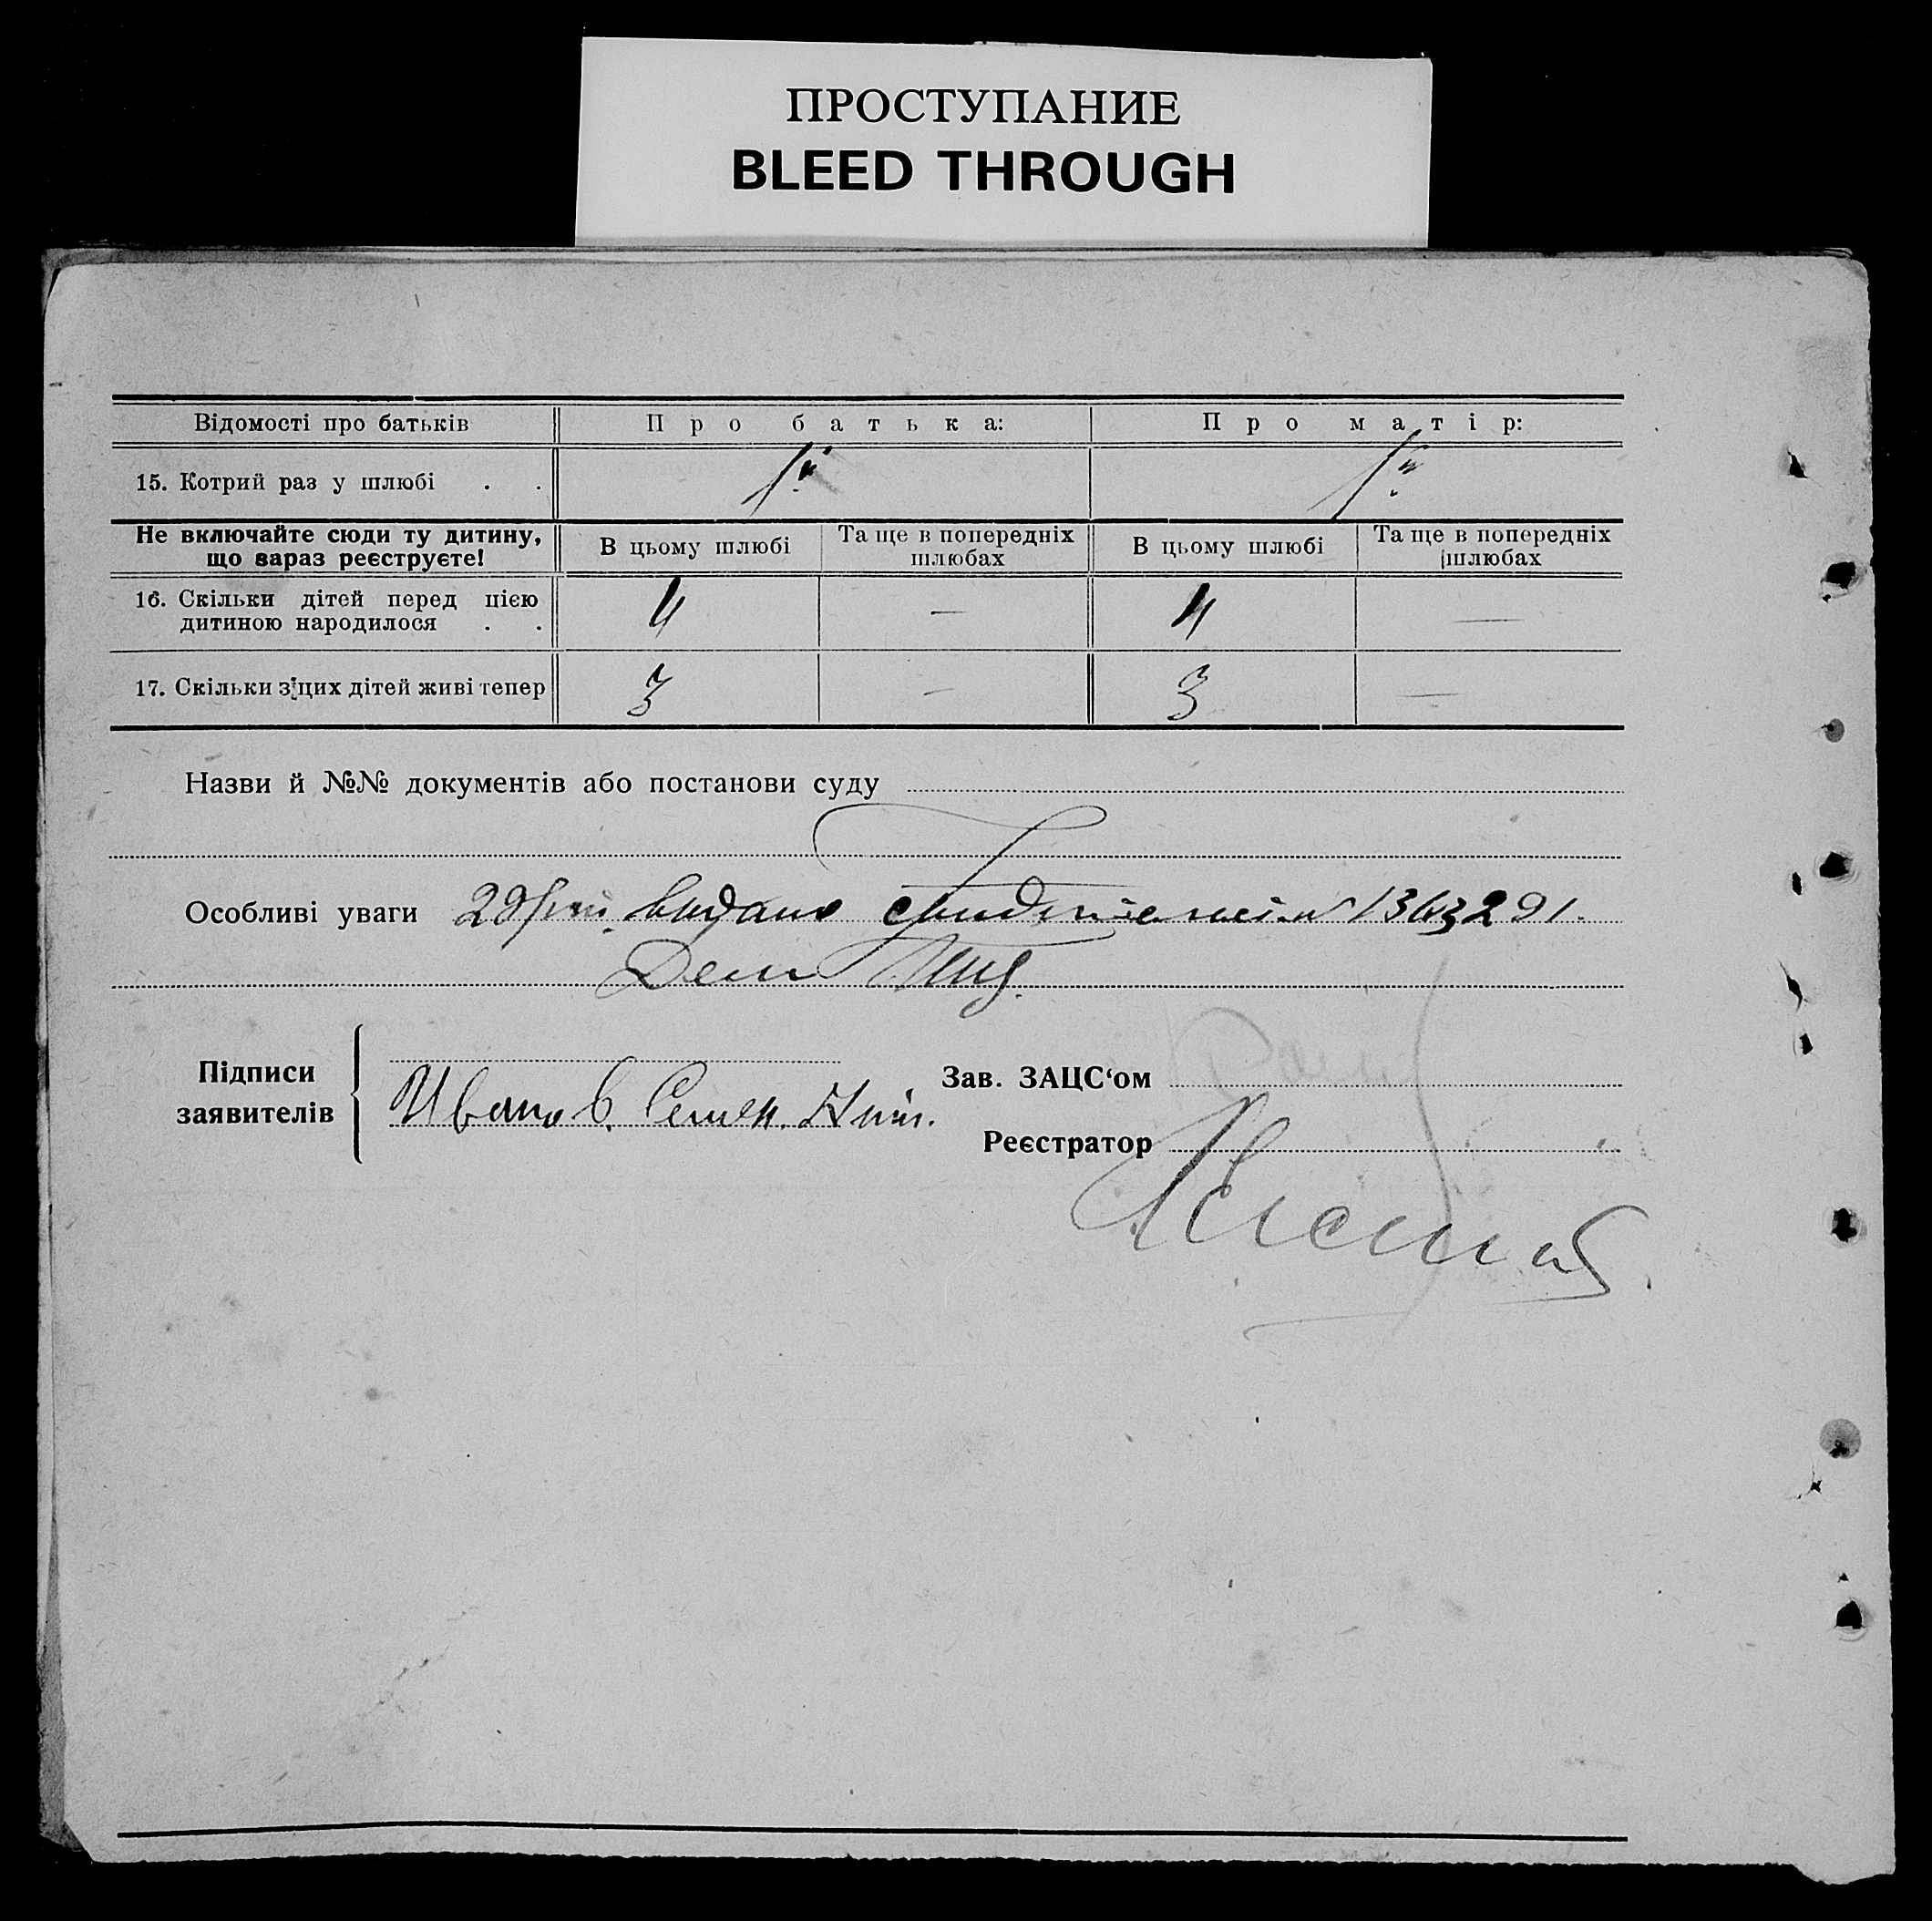 ПРОСТУПАНИЕ
BLEED THROUGH
Відомості про батьків Про батька: Про матір:
15. Котрий раз у шлюбі . . 1й 1й
Не включайте сюди ту дитину, що зараз реєструєте! В цьому шлюбі Та ще в попередніх шлюбах В цьому шлюбі Та ще в попередніх шлюбах
16. Скільки дітей перед цією дитиною народилося . . 4 — 4 —
17. Скільки з цих дітей живі тепер 3 — 3 —
Назви й №№ документів або постанови суду
Особливі уваги видано
Підписи заявителів
Иванов. Семен.
Зав. ЗАЦС‘ом
Реєстратор